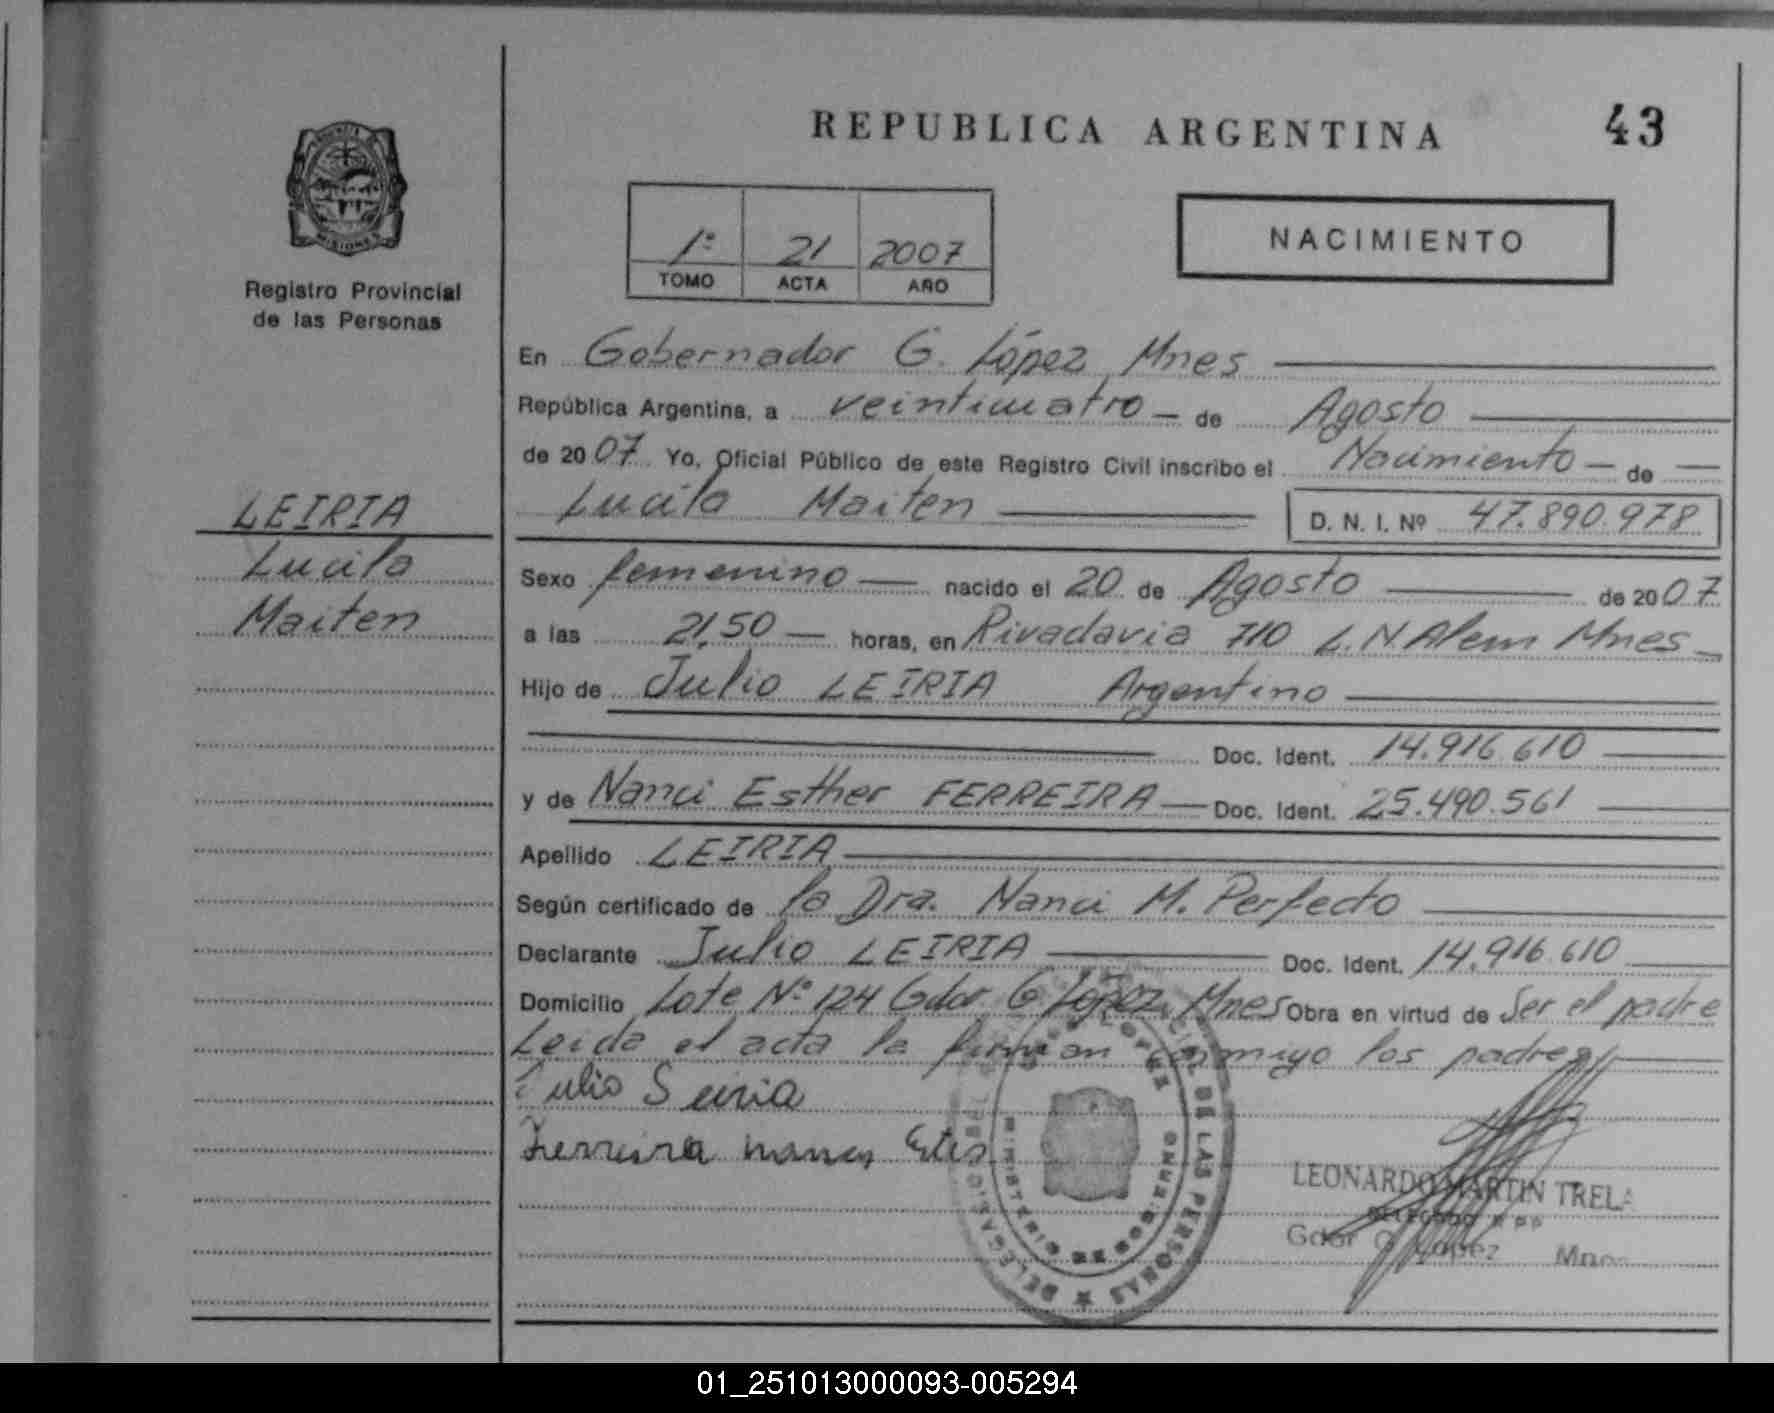 REPUBLICA ARGENTINA
43
MISIONES
Registro Provincial
de las Personas
1º 21 2007
TOMO ACTA AÑO
NACIMIENTO
LEIRIA
Lucila
Maiten
En Gobernador G. López Mnes
República Argentina, a veinticuatro de Agosto
de 2007 Yo, Oficial Público de este Registro Civil inscribo el Nacimiento de
Lucila Maiten D. N. I. Nº 47.890.978
Sexo femenino nacido el 20 de Agosto de 2007
a las 21,50 horas, en Rivadavia 710 L.N.Alem Mnes
Hijo de Julio LEIRIA Argentino
Doc. Ident. 14.916.610
y de Nanci Esther FERREIRA Doc. Ident. 25.490.561
Apellido LEIRIA
Según certificado de la Dra. Nanci M. Perfecto
Declarante Julio LEIRIA Doc. Ident. 14.916.610
Domicilio Lote Nº 124 Gdor. G. López Mnes Obra en virtud de Ser el padre
Leida el acta la firman conmigo los padres
Julio
Ferreira
DE LAS PERSONAS
MINISTERIO DE GOBIERNO
LEONARDO MARTIN TRELA
DELEGADO
Gdor G López Mnes
01_251013000093-005294